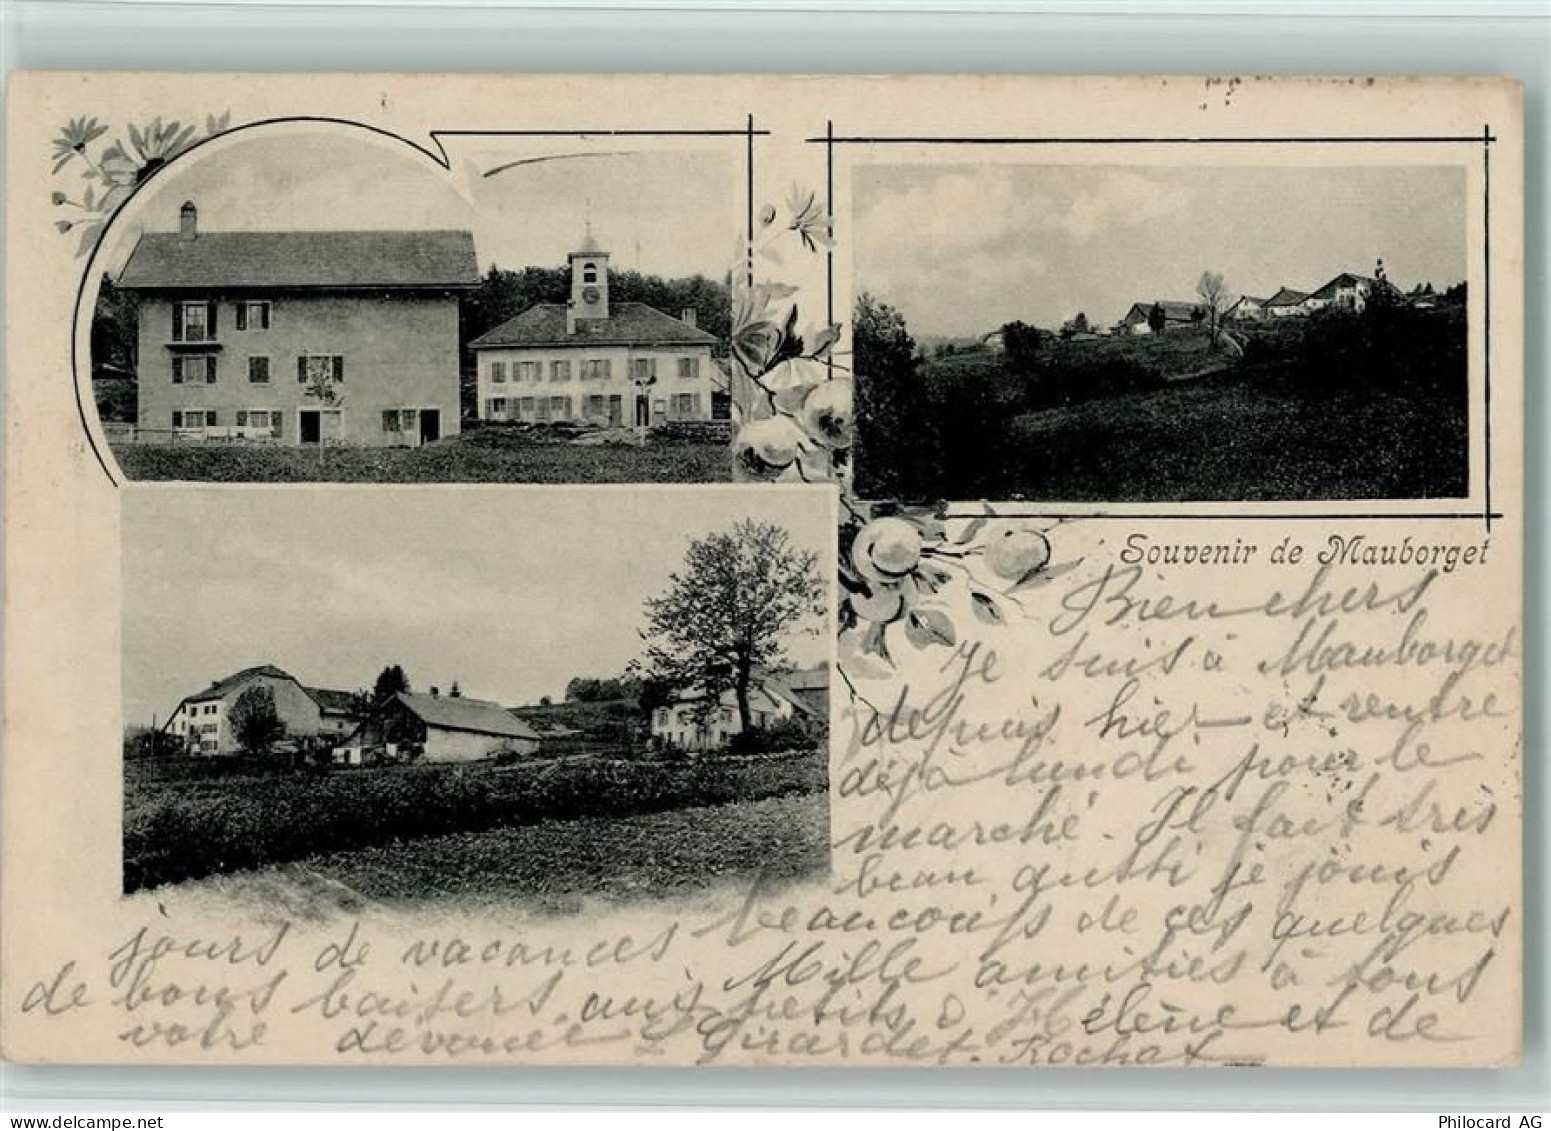 Souvenir de Mauborget
Bien chers
Je suis à Mauborget
depuis hier et rentre
déjà lundi pour le
marché. Il fait très
beau, aussi je jouis
beaucoup de ces quelques
jours de vacances
Mille amitiés à tous
de bons baisers aux petits à Hélène et de
votre dévouée L Girardet. Rochat
Philocard AG